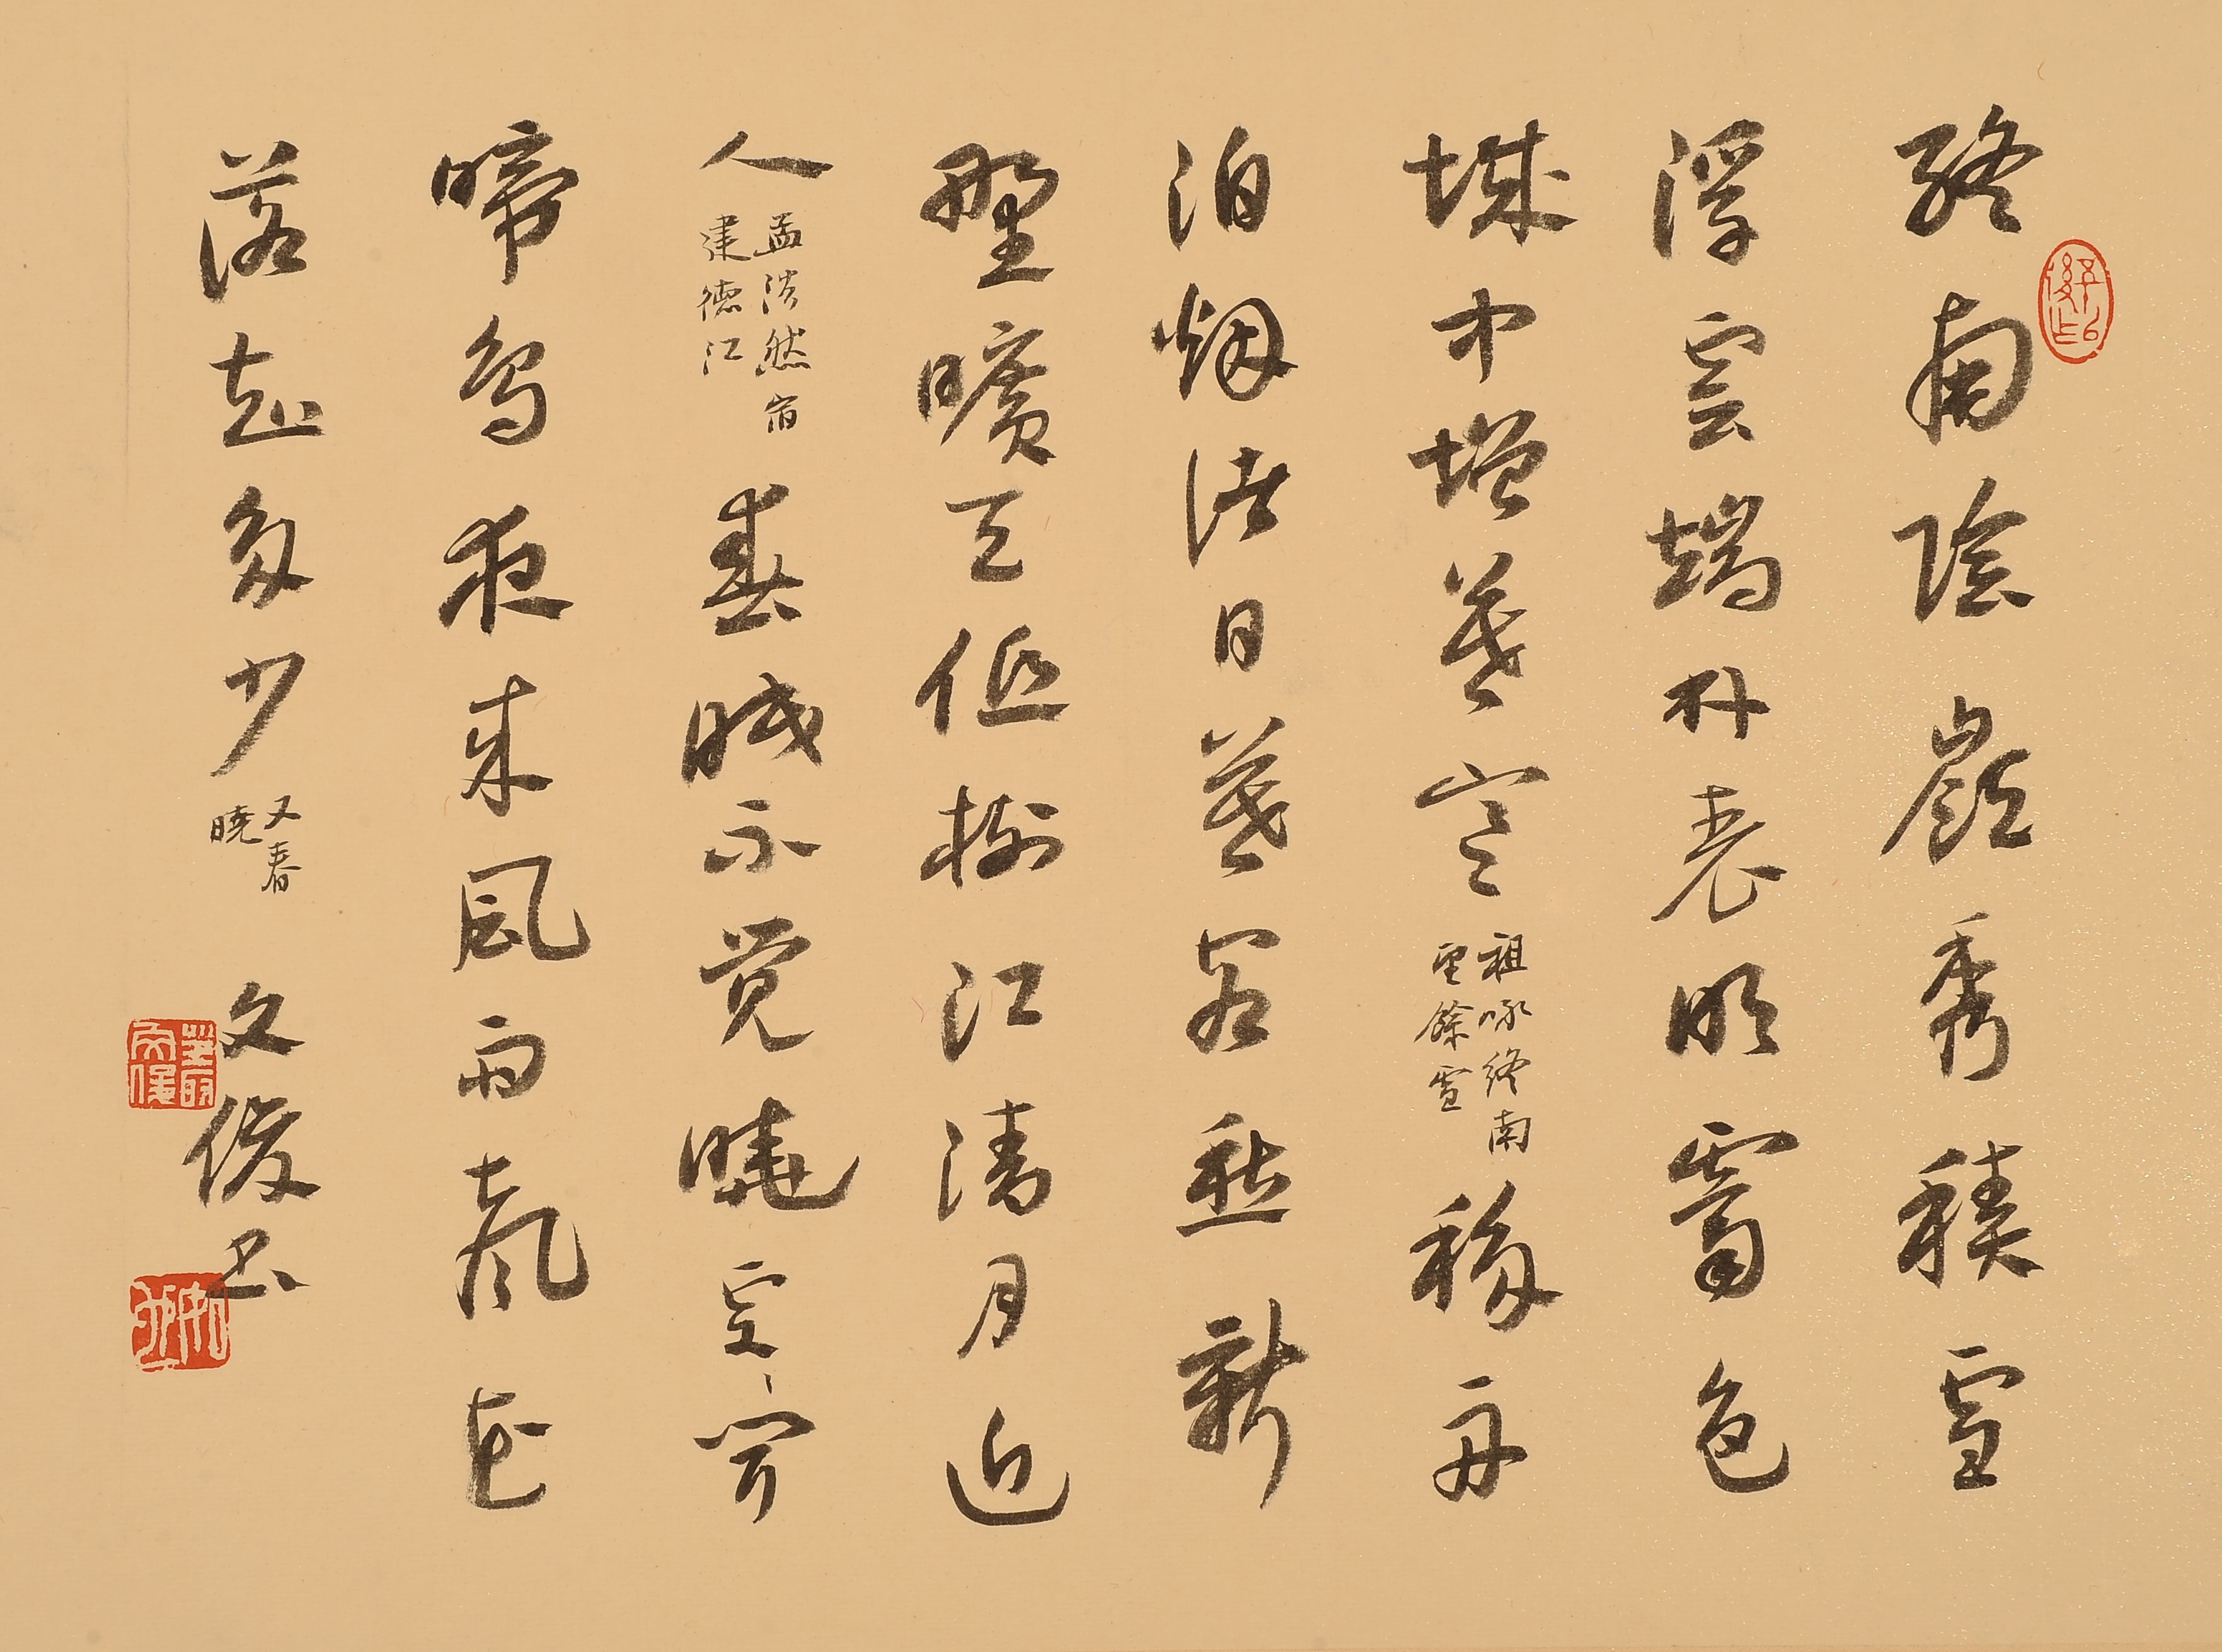 終南陰嶺秀積雪
浮雲端林表明霽色
城中增暮寒
祖咏終南
望餘雪
移舟
泊烟渚日暮客愁新
野曠天低樹江清月近
人
孟浩然宿
建德江
春眠不覺曉處處聞
啼鳥夜來風雨聲花
落知多少
又春
曉
文俊书